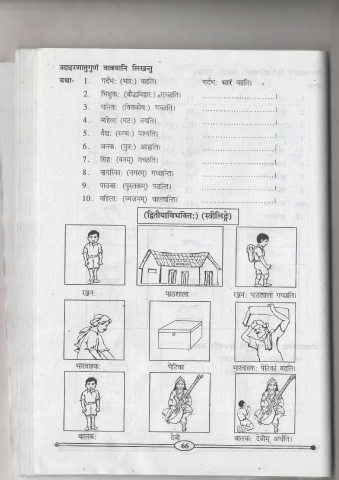 उदाहरणानुगुणं वाक्यानि लिखन्तु
यथा- 1. गर्दभः (भारः) वहति। गर्दभः भारं वहति।
2. भिक्षुकः (बौद्धविहारः) गच्छति। ..............................।
3. धनिकः (वित्तकोषः) गच्छति। ..............................।
4. महिला (घटः) नयति। ..............................।
5. वैद्यः (रुग्णः) पश्यति। ..............................।
6. जनकः (पुत्रः) आह्वयति। ..............................।
7. सिंहः (वनम्) गच्छति। ..............................।
8. नागरिकाः (नगरम्) गच्छन्ति। ..............................।
9. पाठकाः (पुस्तकम्) पठन्ति। ..............................।
10. महिलाः (व्यजनम्) चालयन्ति। ..............................।
(द्वितीयाविभक्तिः) (स्त्रीलिङ्गे)
रञ्जनः पाठशाला रञ्जनः पाठशालां गच्छति।
भारवाहकः पेटिका भारवाहकः पेटिकां वहति।
बालकः देवी बालकः देवीम् अर्चति।
66